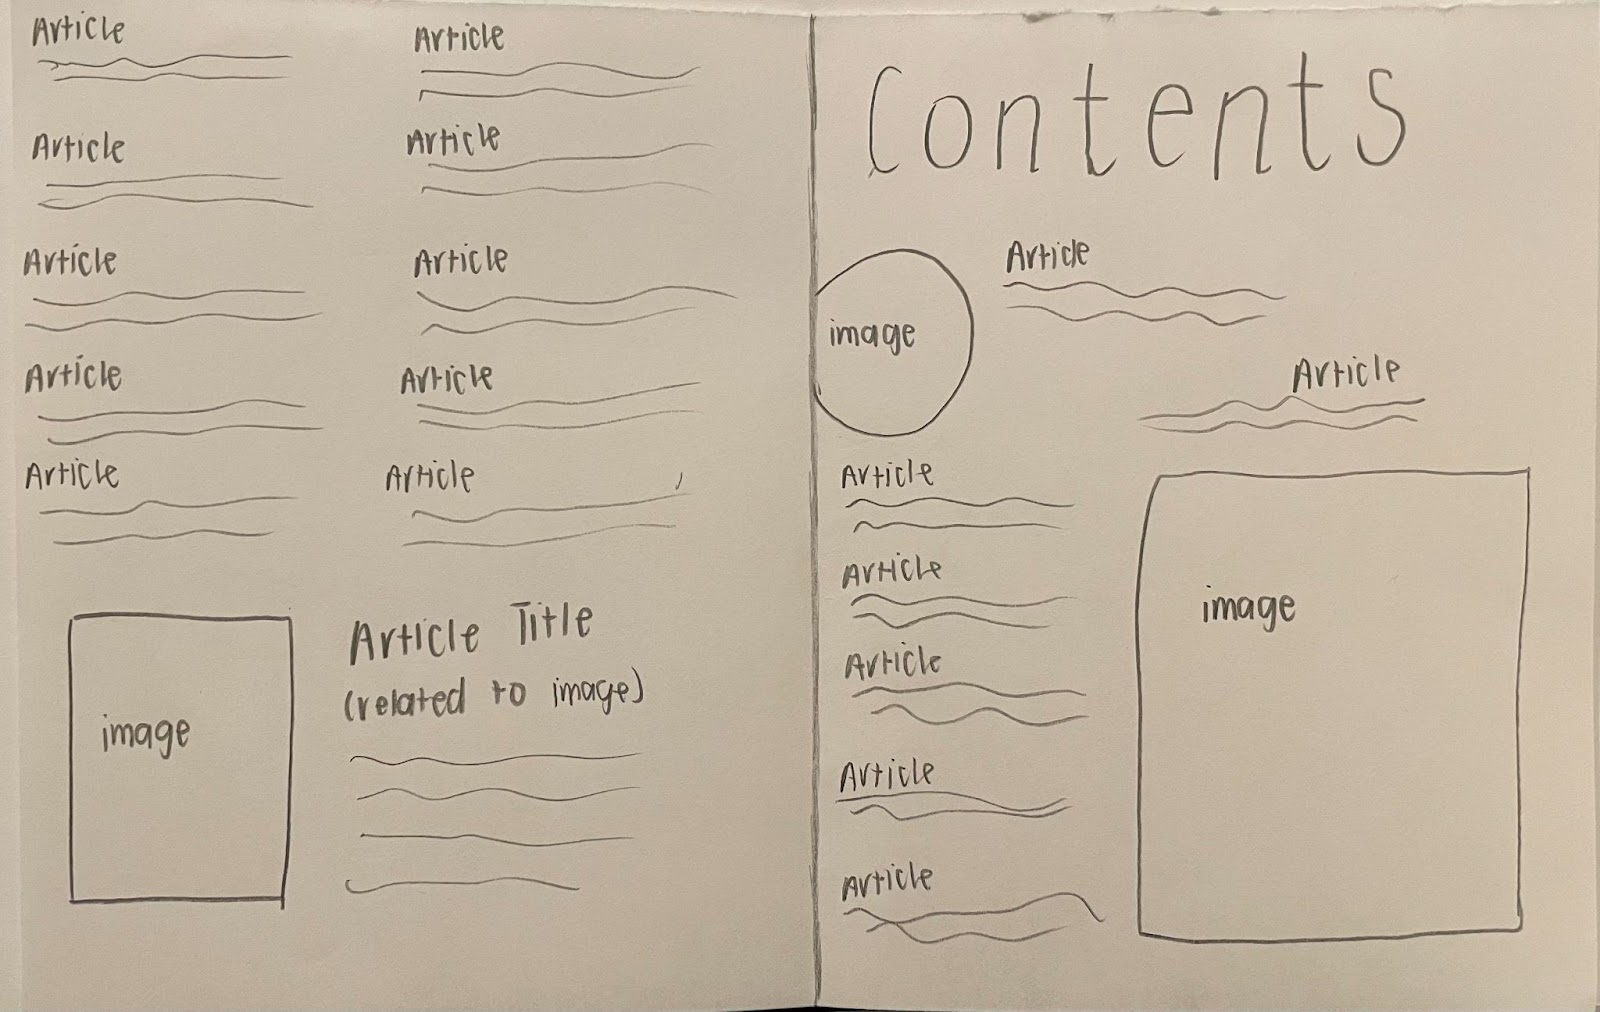 Article
Article
Article
Article
Article
Article
Article
Article
Article
Article
image
Article Title
(related to image)
Contents
image
Article
Article
Article
Article
Article
Article
Article
image